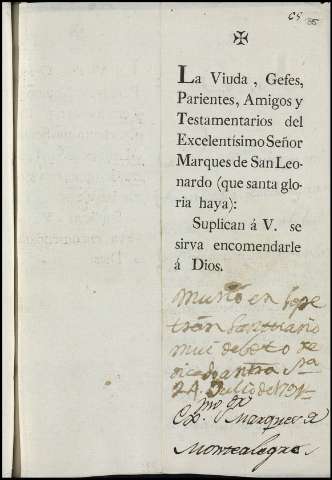 C8 85
✠
La Viuda, Gefes,
Parientes, Amigos y
Testamentarios del
Excelentísimo Señor
Marques de San Leo-
nardo (que santa glo-
ria haya):
Suplican á V. se
sirva encomendarle
á Dios.
Murió en
Santuario
mui deboto de
24 Julio de 1791
Exmo Sor Marques de
Montealegre